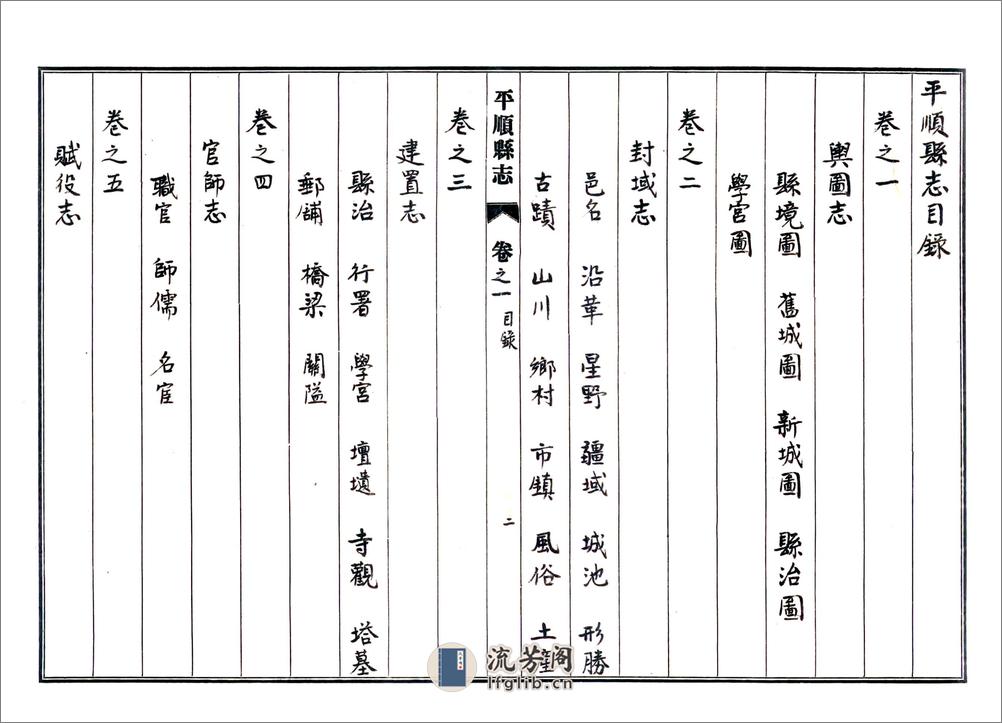 平順縣志目錄
卷之一
輿圖志
縣境圖 舊城圖 新城圖 縣治圖
學宮圖
卷之二
封域志
邑名 沿革 星野 疆域 城池 形勝
古蹟 山川 鄉村 市鎮 風俗 土
平順縣志 卷之一 目錄 二
卷之三
建置志
縣治 行署 學宮 壇壝 寺觀 塔墓
郵舖 橋梁 關隘
卷之四
官師志
職官 師儒 名宦
卷之五
賦役志
流芳阁
lfglib.cn